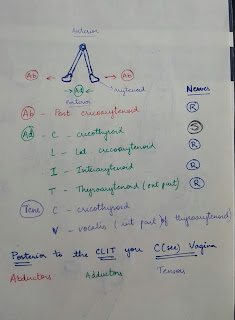 Anterior
Ab Ab
Ad arytenoid
Posterior
Nerves
Ab - Post cricoarytenoid R
Ad - C - cricothyroid S
L - Lat. cricoarytenoid R
I - Interarytenoid R
T - Thyroarytenoid (ext part) R
Tens C - cricothyroid
V - vocalis (int part) of thyroarytenoid
Posterior to the CLIT you C(see) Vagina
Abductors Adductors Tensors